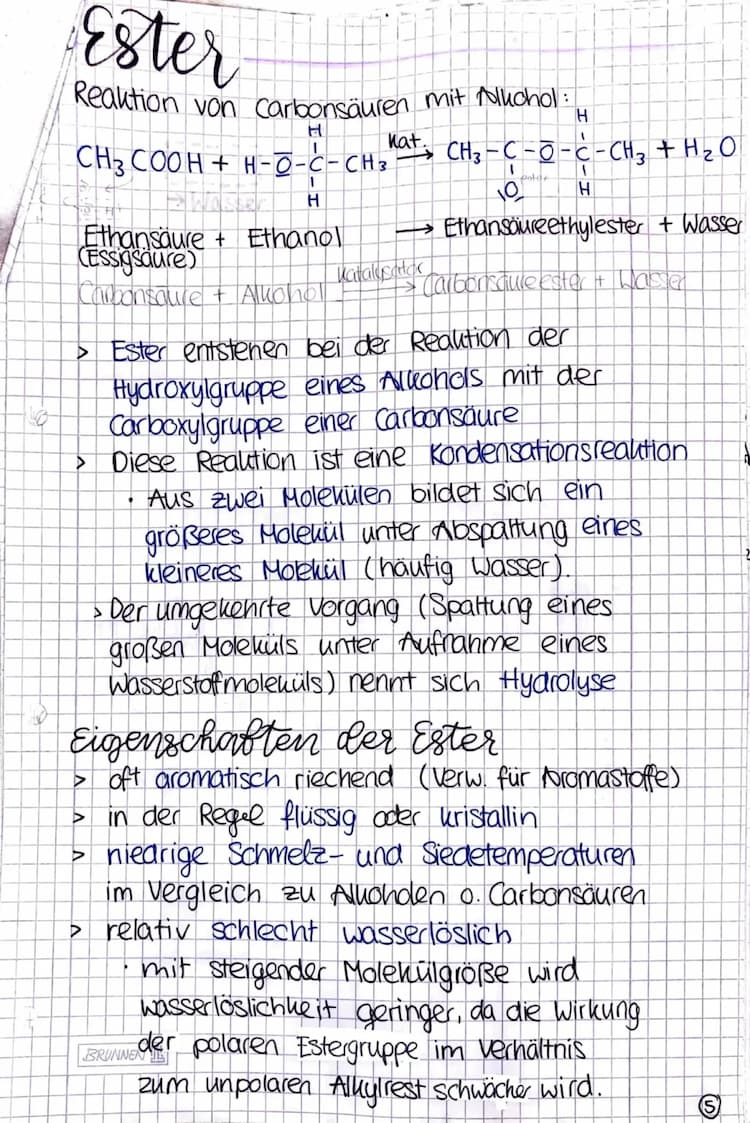 Ester
Reaktion von Carbonsäuren mit Alkohol:
H H
CH3COOH + H-O-C-CH3 Kat. → CH3-C-O-C-CH3 + H2O
H O H
→ Wasser
Ethansäure + Ethanol → Ethansäureethylester + Wasser
(Essigsäure)
Carbonsäure + Alkohol Katalysator → Carbonsäureester + Wasser
> Ester entstehen bei der Reaktion der
Hydroxylgruppe eines Alkohols mit der
Carboxylgruppe einer Carbonsäure
> Diese Reaktion ist eine Kondensationsreaktion
· Aus zwei Molekülen bildet sich ein
größeres Molekül unter Abspaltung eines
kleineres Molekül (häufig Wasser).
> Der umgekehrte Vorgang (Spaltung eines
großen Moleküls unter Aufnahme eines
Wasserstoffmoleküls) nennt sich Hydrolyse
Eigenschaften der Ester
> oft aromatisch riechend (Verw. für Aromastoffe)
> in der Regel flüssig oder kristallin
> niedrige Schmelz- und Siedetemperaturen
im Vergleich zu Alkoholen o. Carbonsäuren
> relativ schlecht wasserlöslich
· mit steigender Molekülgröße wird
wasserlöslichkeit geringer, da die Wirkung
der polaren Estergruppe im Verhältnis
BRUNNEN
zum unpolaren Alkylrest schwächer wird.
5